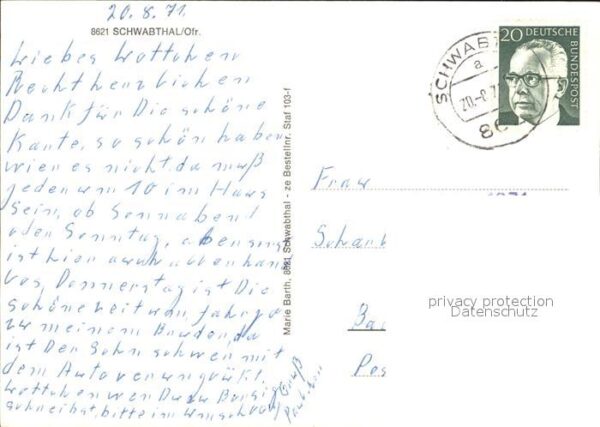 20.8.71.
8621 SCHWABTHAL/Ofr.
Liebes Lottchen
Recht herzlichen
Dank für Die schöne
Karte, so schön haben
wier es nicht, da muß
jeder um 10 im Haus
sein, ob Sonnabend
oder Sonntag, aber sonst
ist hier auch allerhand
los, Donnerstag ist Die
schöne heit
zu meinem Bruder, da
ist Der Sohn schwer mit
dem Auto verunglückt.
Lottchen wen Du
schreibst, bitte im Umschlag
Gruß
Marie Barth, 8621 Schwabthal - ze Bestellnr. Staf 103-f
20 DEUTSCHE
BUNDESPOST
SCHWABT
a
20.-8.7
86
Frau
Schank
Ba
Pos
privacy protection
Datenschutz